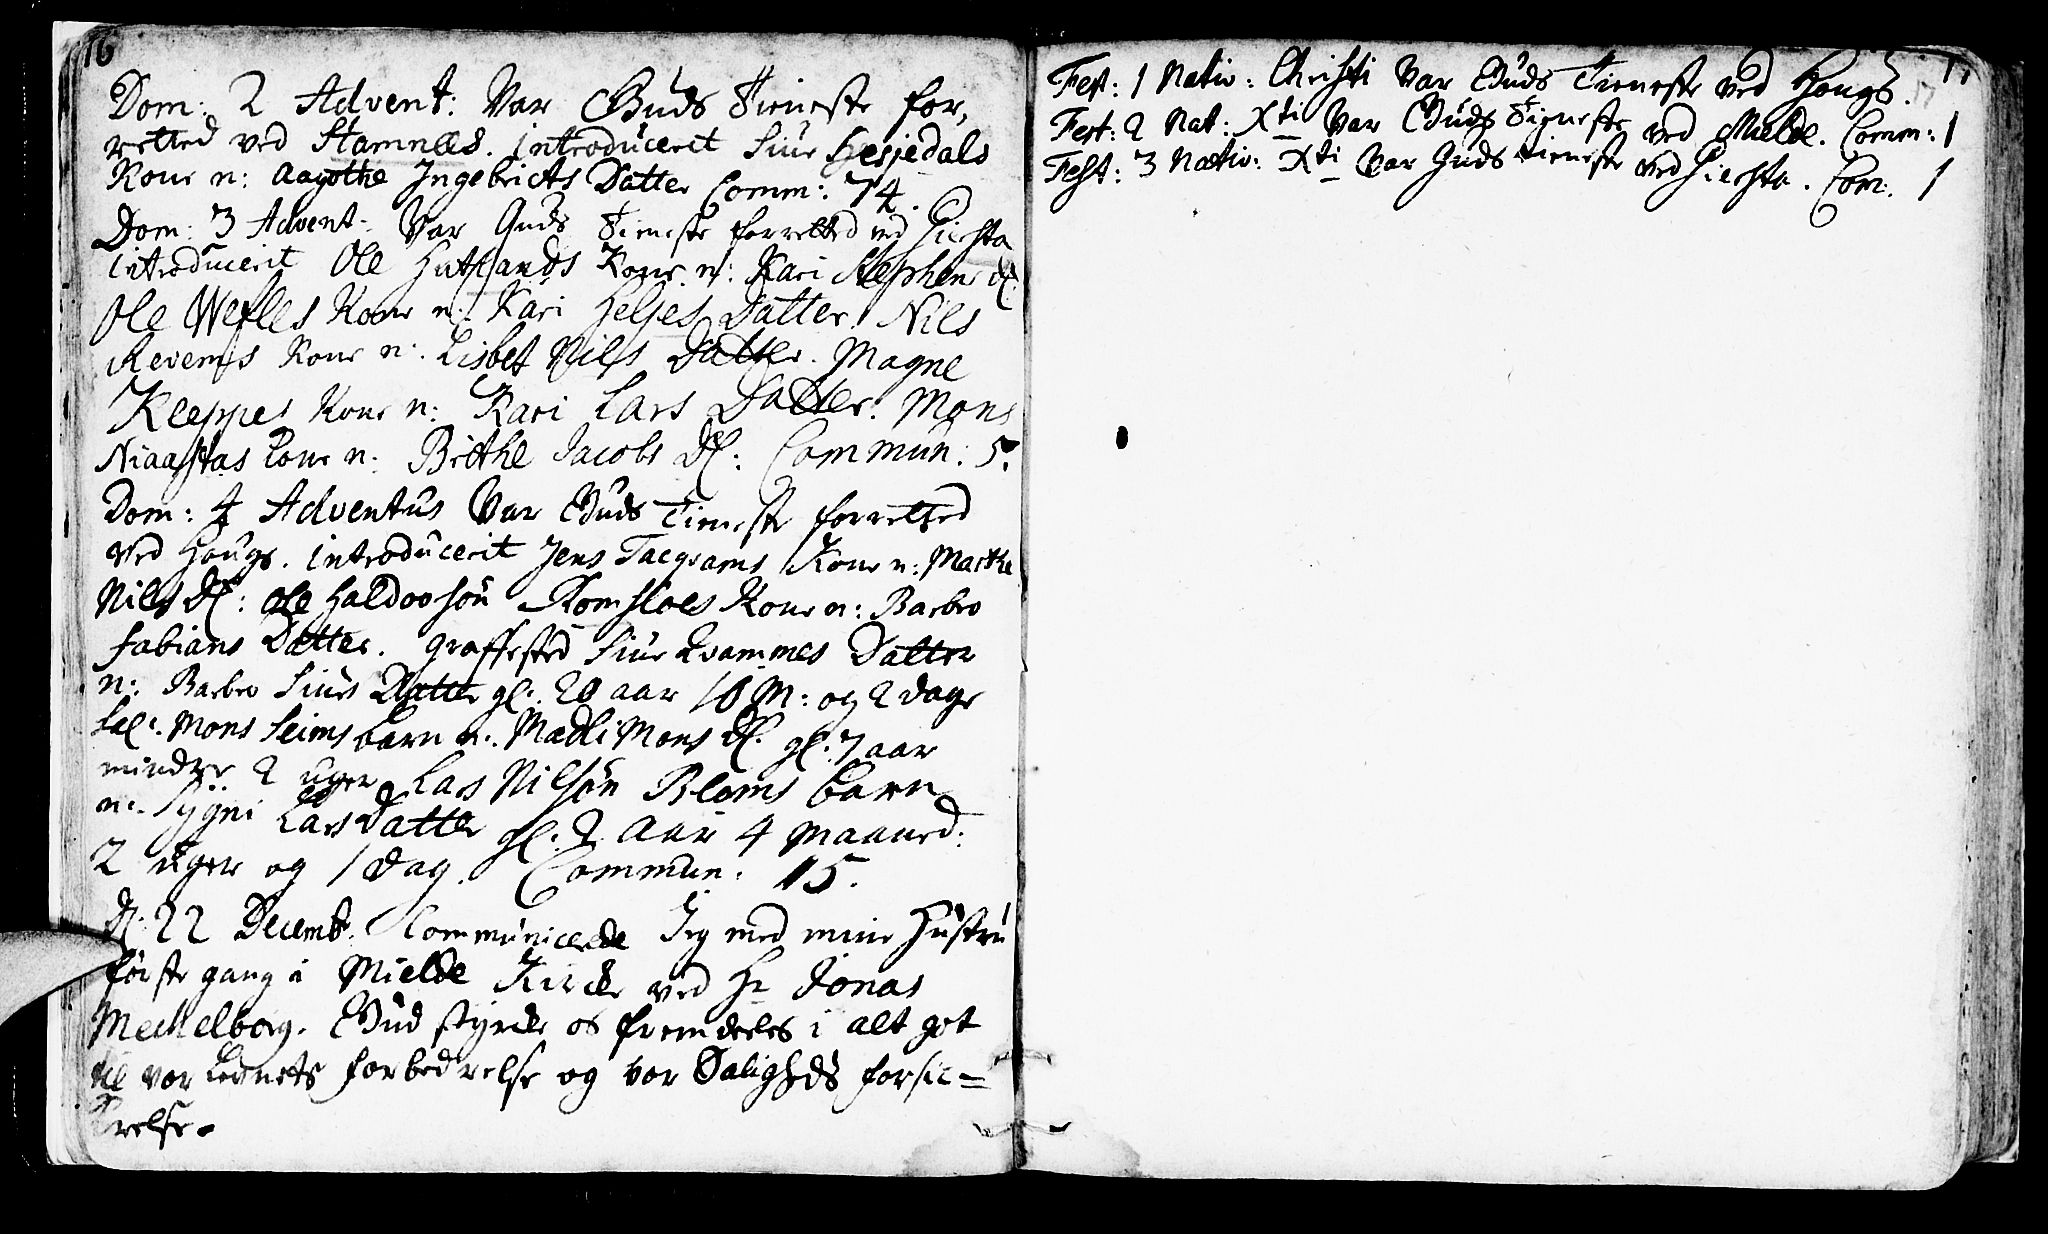 16
Dom: 2 Advent: Var Guds Tieneste for,
retted ved Stamnees. introducerit Siur Hesjedals
Kone n: Aagothe Ingebricts Datter Comm: 74.
Dom: 3 Advent: Var Guds Tieneste forretted ved Giersta
introducerit Ole Hatlands Kone n: Kari Stephens d.
Ole Wefles Kone n: Kari Heljes Datter. Nils
Revems Kone n: Lisbet Nils Datter. Magne
Kleppes Kone n: Kari Lars Datter. Mons
Niaastas Kone n: Brithe Jacobs D: Commun: 5.
Dom: 4 Adventus Var Guds Tieneste forretted
ved Hougs. introducerit Jens Tacqvams Kone n: Marthe
Nils D: Ole Haldorsön Romsloes Kone n: Barbro
Fabians Datter. Graffested Siur Qvammes Datter
n: Barbro Siurs Datter gl: 20 aar 10 M: og 2 dage
Sal: Mons Seims barn n: Madli Mons D. gl: 7 aar
mindre 2 uger Lars Nilsön Bloms barn
n: Sygni Lars Datter gl: 2 Aar 4 Maaned:
2 uger og 1 dag. Commun: 15.
D: 22 Decemb: Communicerede Jeg med min Hustru
første gang i Mielde Kircke ved Hr Jonas
Mechelborg. Gud styrcke os fremdeeles i alt got
til vor Lefnets forbedrelse og vor Saligheds forsic=
krelse.
17
Fest: 1 Nativ: Christi Var Guds Tieneste ved Hougs.
Fest: 2 Nat: Xti Var Guds Tieneste ved Mielde. Comm: 1
Fest: 3 Nativ: Xti Var Guds tieneste ved Giersta. Com: 1